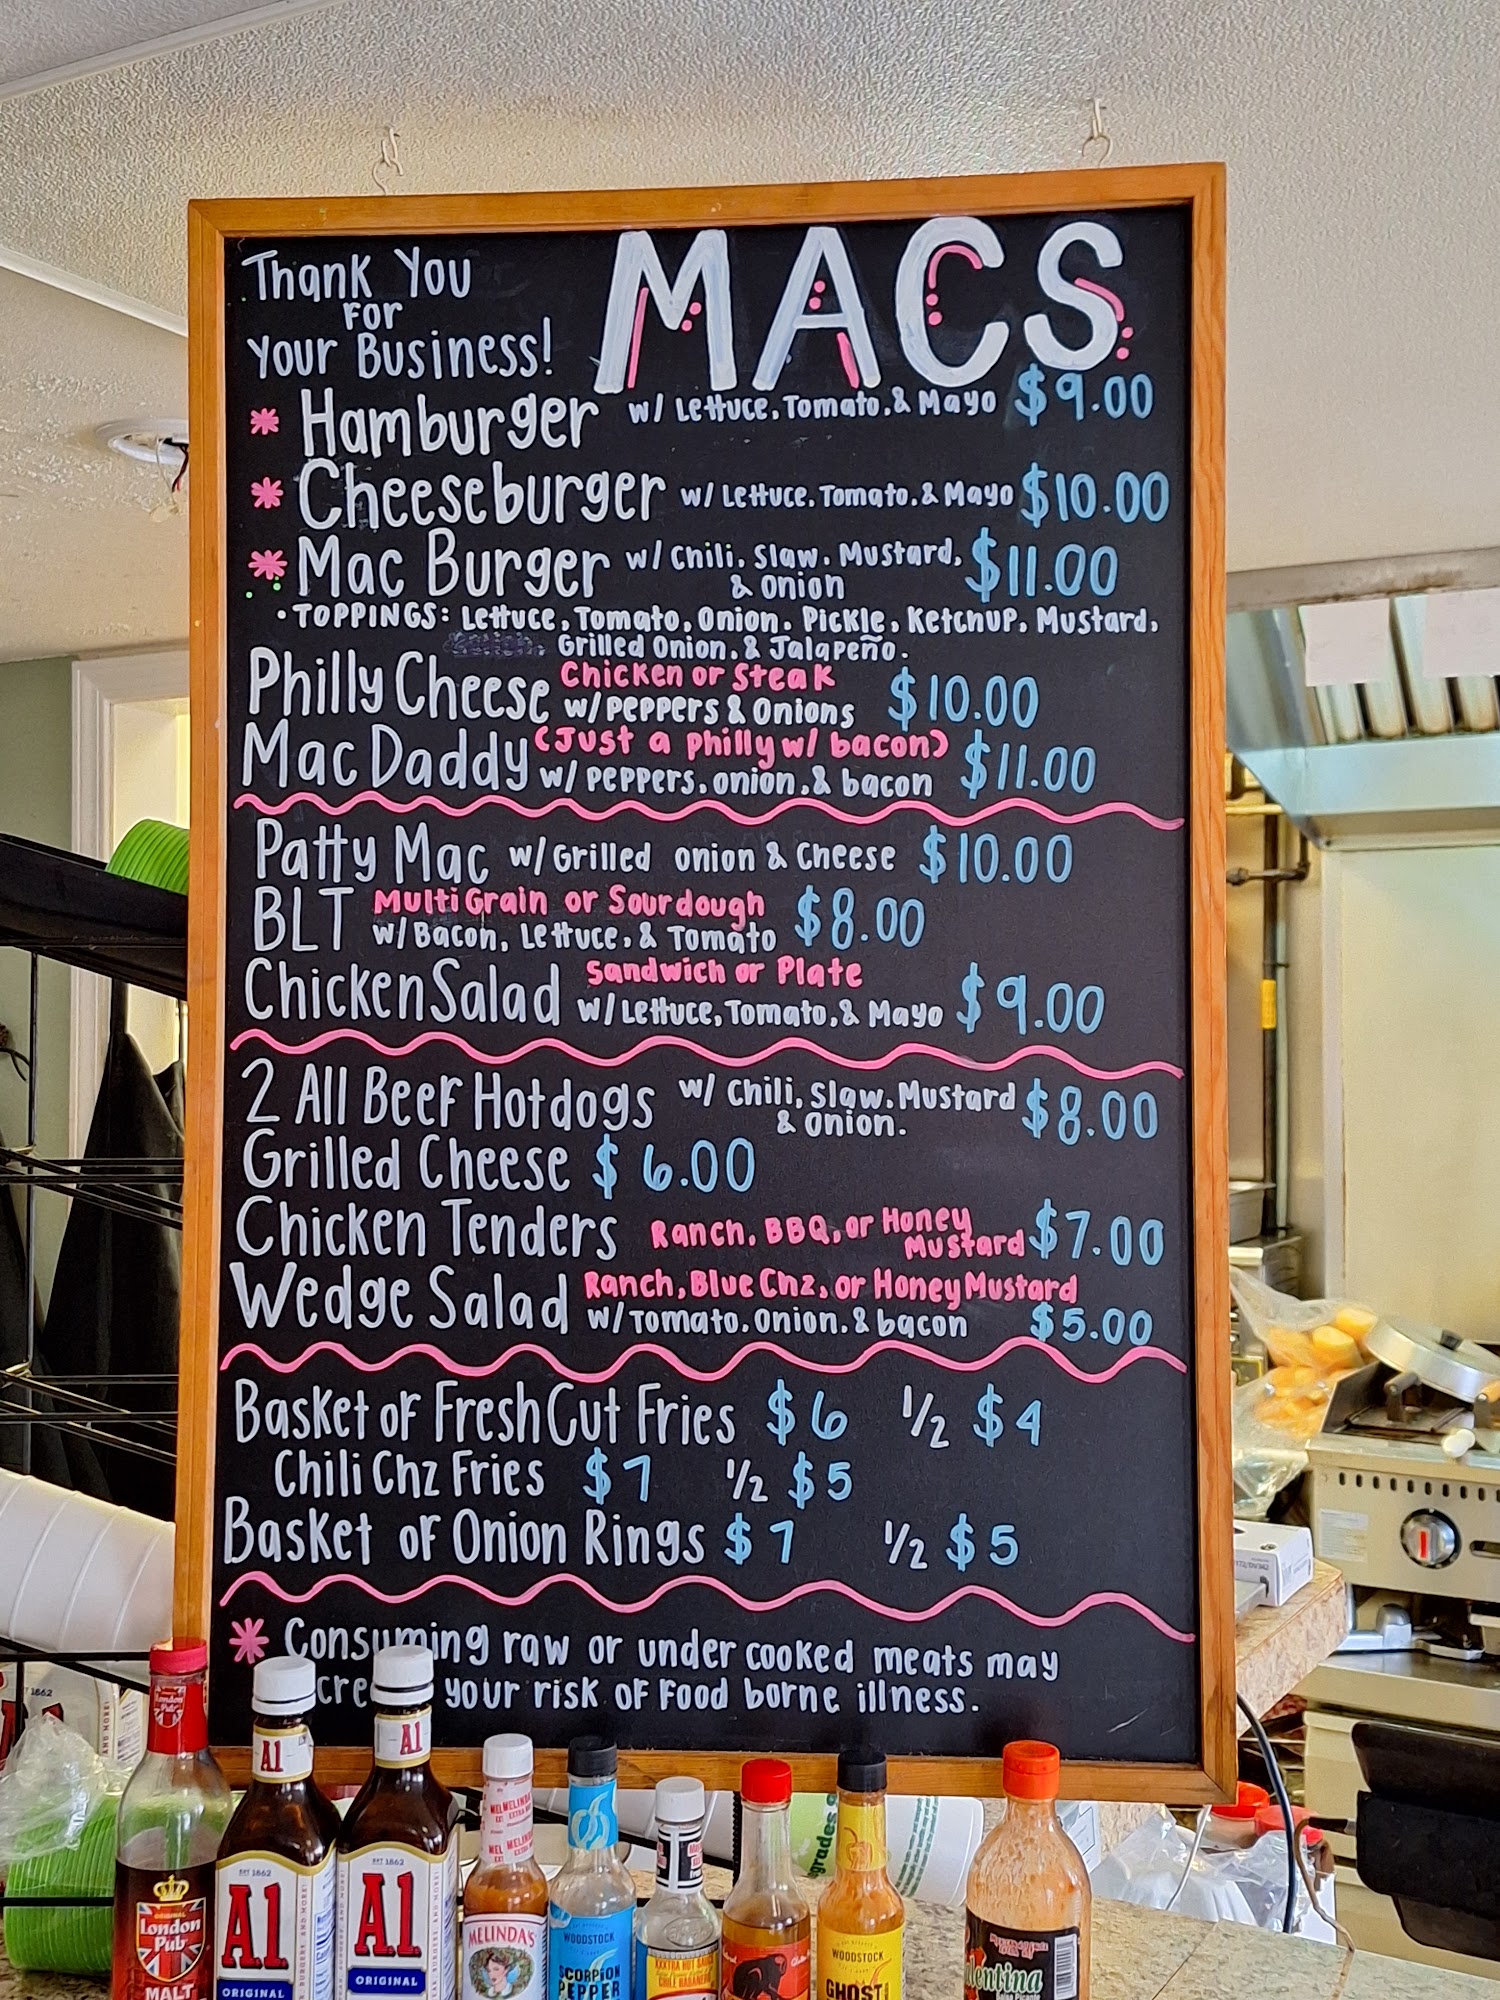 Thank You
For
Your Business!
MACS
* Hamburger w/ Lettuce, Tomato, & Mayo $9.00
* Cheeseburger w/ Lettuce, Tomato, & Mayo $10.00
* Mac Burger w/ Chili, Slaw, Mustard, $11.00
& Onion
• TOPPINGS: Lettuce, Tomato, Onion, Pickle, Ketchup, Mustard,
Grilled Onion, & Jalapeño.
Philly Cheese Chicken or Steak
w/ peppers & Onions $10.00
Mac Daddy (Just a philly w/ bacon)
w/ peppers, onion, & bacon $11.00
Patty Mac w/ Grilled onion & Cheese $10.00
BLT MultiGrain or Sourdough
w/ Bacon, Lettuce, & Tomato $8.00
Chicken Salad Sandwich or Plate
w/ Lettuce, Tomato, & Mayo $9.00
2 All Beef Hotdogs w/ Chili, Slaw, Mustard $8.00
& Onion.
Grilled Cheese $6.00
Chicken Tenders Ranch, BBQ, or Honey
Mustard $7.00
Wedge Salad Ranch, Blue Chz, or Honey Mustard
w/ Tomato, Onion, & bacon $5.00
Basket of Fresh Cut Fries $6 1/2 $4
Chili Chz Fries $7 1/2 $5
Basket of Onion Rings $7 1/2 $5
* Consuming raw or under cooked meats may
your risk of Food borne illness.
London
Pub
MALT
A1
EST 1862
A1
ORIGINAL
A1
EST 1862
A1
ORIGINAL
MELINDA'S
WOODSTOCK
SCORPION
PEPPER
WOODSTOCK
GHOST